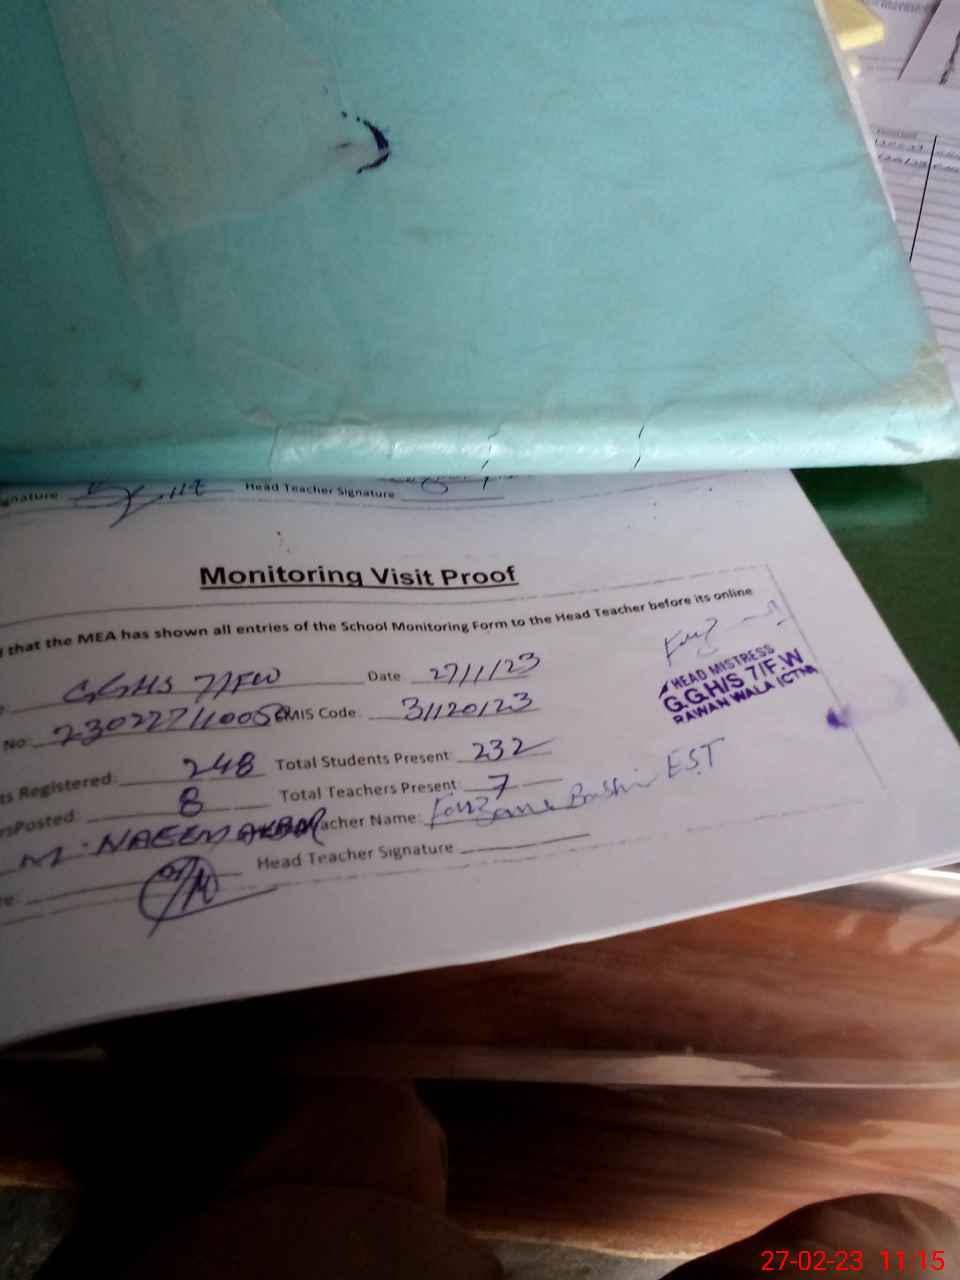 gnature Head Teacher Signature
Monitoring Visit Proof
that the MEA has shown all entries of the School Monitoring Form to the Head Teacher before its online
GGHS 7/FW Date 27/1/23
No: EMIS Code: 31120123
ts Registered: 248 Total Students Present: 232
rsPosted: 8 Total Teachers Present: 7
M. NAEEM AKBAR acher Name: EST
re: Head Teacher Signature
HEAD MISTRESS
G.G.H/S 7/F.W
RAWAN WALA (CTN)
27-02-23 11:15